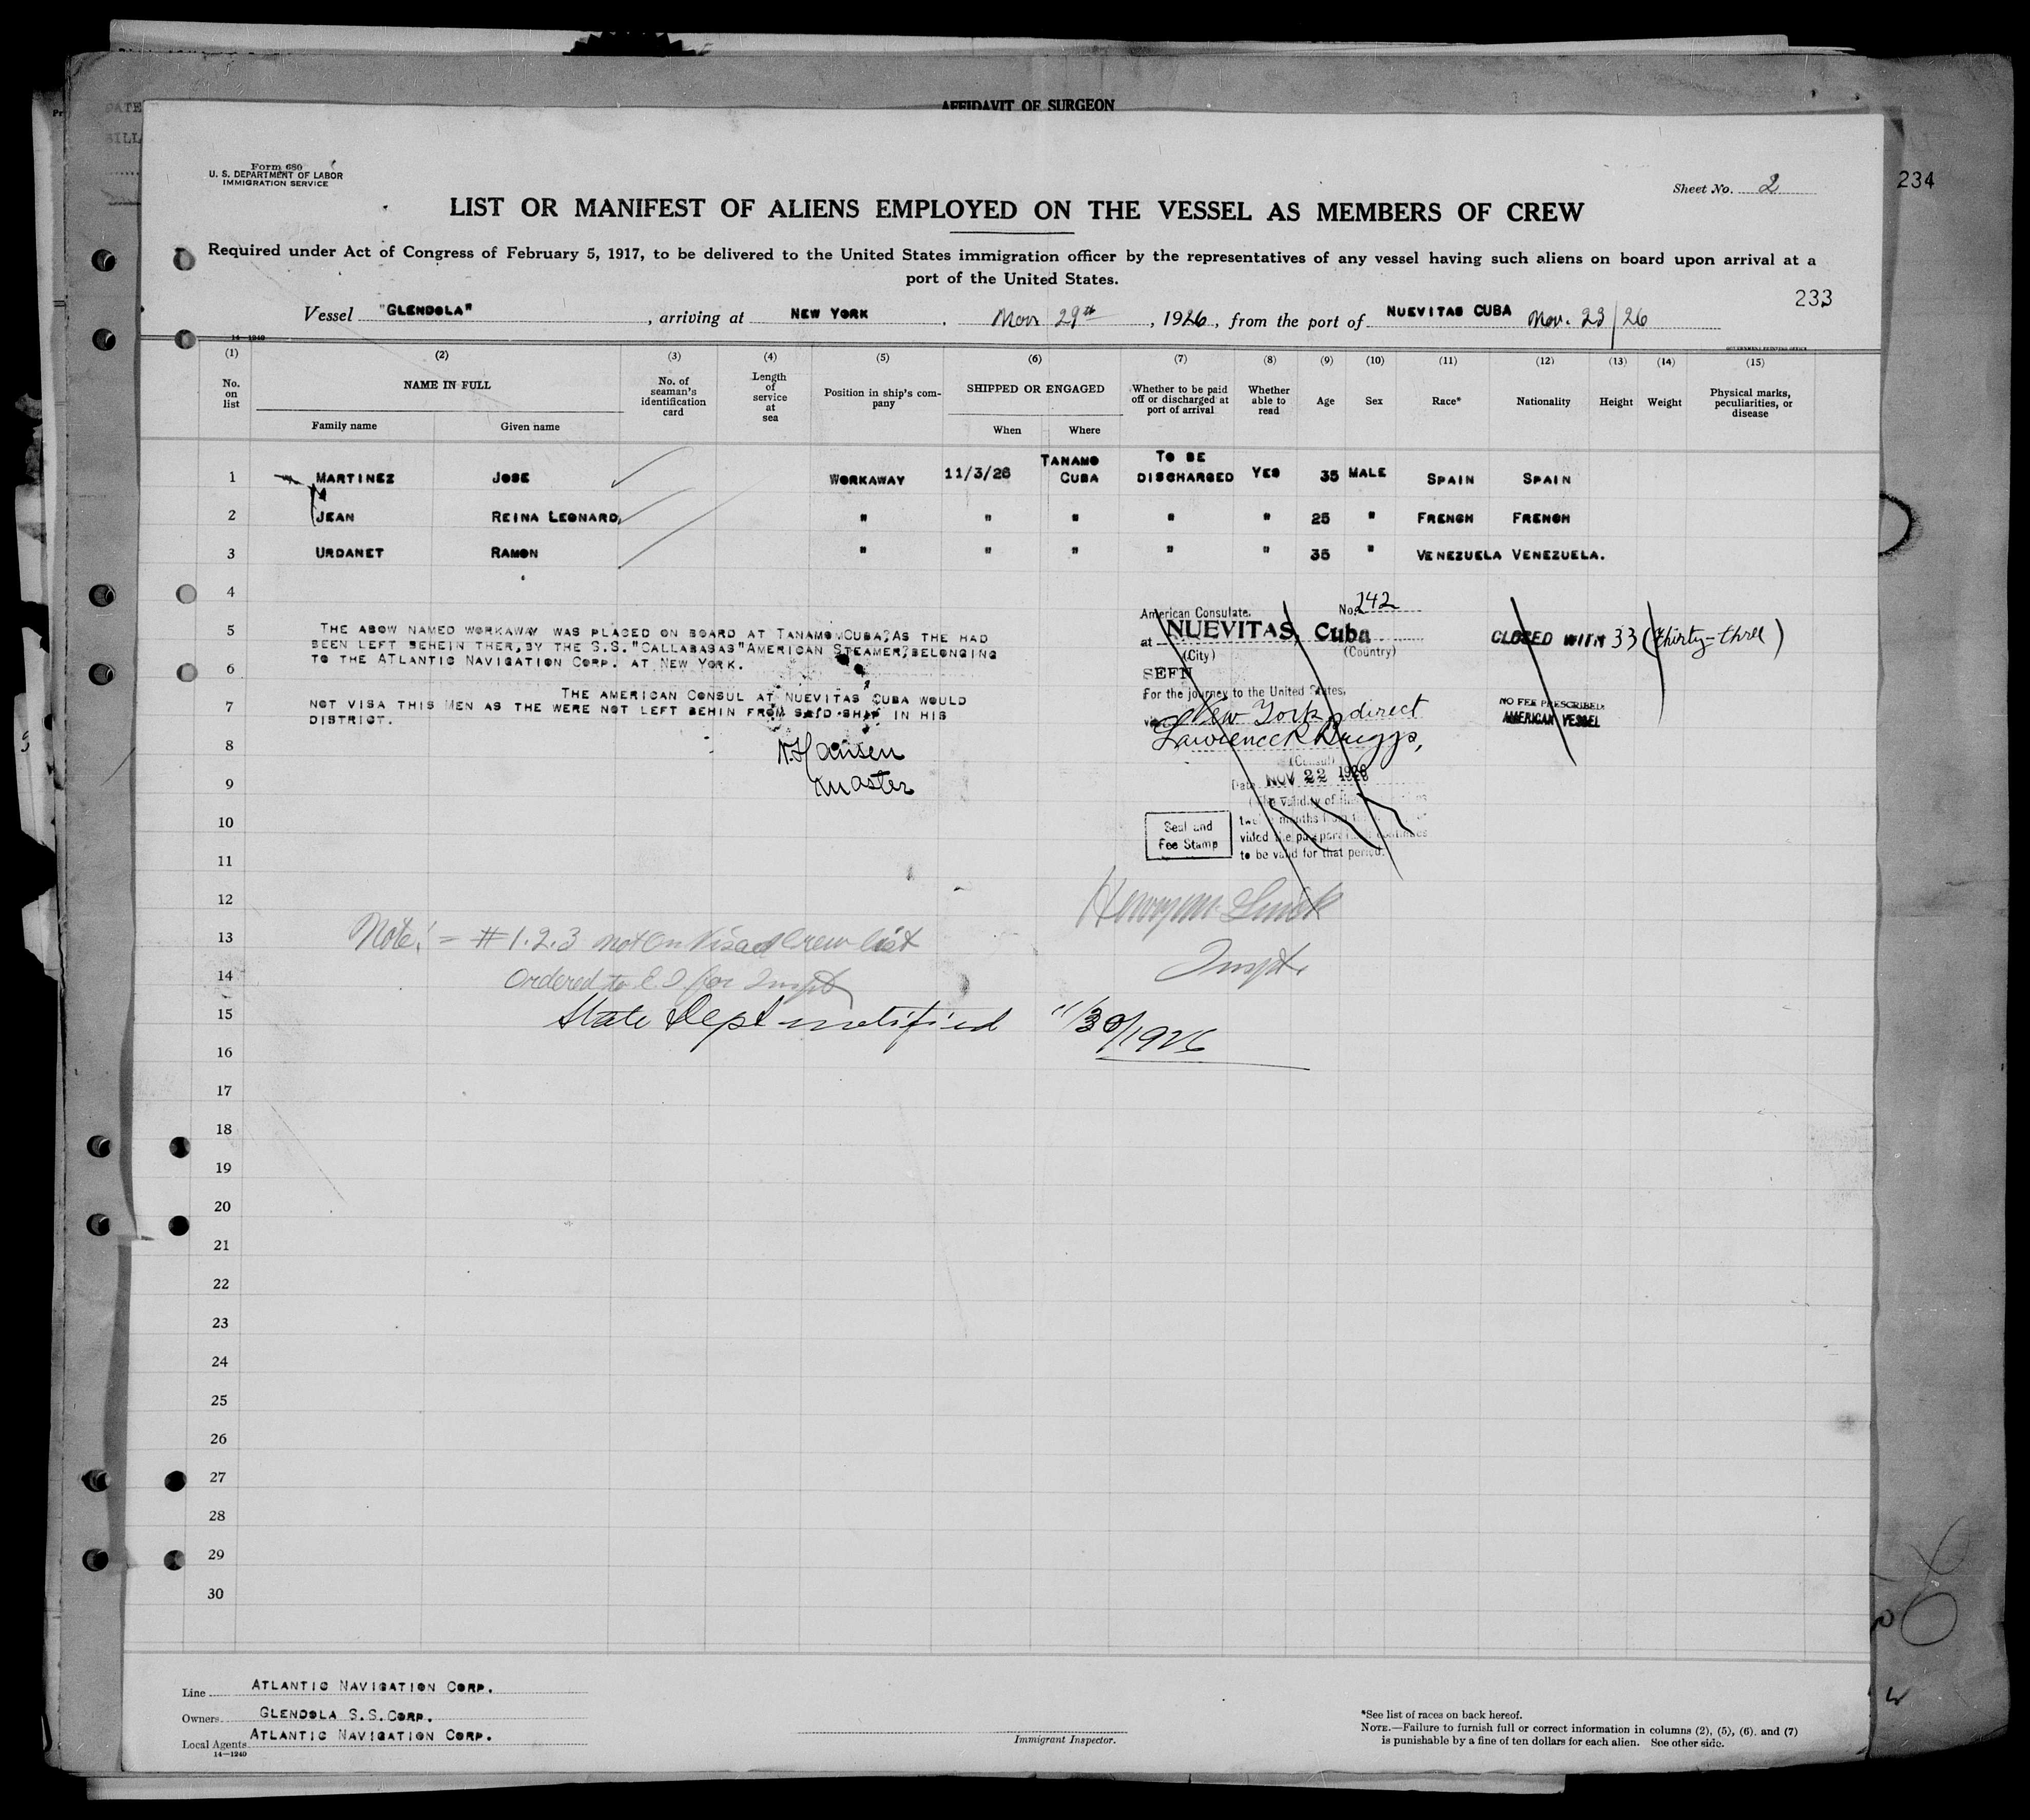 AFFIDAVIT OF SURGEON
Form 680
U. S. DEPARTMENT OF LABOR
IMMIGRATION SERVICE
Sheet No. 2
234
LIST OR MANIFEST OF ALIENS EMPLOYED ON THE VESSEL AS MEMBERS OF CREW
Required under Act of Congress of February 5, 1917, to be delivered to the United States immigration officer by the representatives of any vessel having such aliens on board upon arrival at a
port of the United States.
233
Vessel "GLENDOLA", arriving at NEW YORK, Nov 29th, 1926, from the port of NUEVITAS CUBA Nov. 23/26
14—1240
GOVERNMENT PRINTING OFFICE
(1) (2) (3) (4) (5) (6) (7) (8) (9) (10) (11) (12) (13) (14) (15)
No. on list
NAME IN FULL
Family name Given name
No. of seaman's identification card
Length of service at sea
Position in ship's company
SHIPPED OR ENGAGED
When Where
Whether to be paid off or discharged at port of arrival
Whether able to read
Age
Sex
Race*
Nationality
Height
Weight
Physical marks, peculiarities, or disease
1 MARTINEZ JOSE WORKAWAY 11/3/26 TANAMO CUBA TO BE DISCHARGED YES 35 MALE SPAIN SPAIN
2 JEAN REINA LEONARD, " " " " " 25 " FRENCH FRENCH
3 URDANET RAMON " " " " " 35 " VENEZUELA VENEZUELA.
4
5
6
7
8
9
10
11
12
13
14
15
16
17
18
19
20
21
22
23
24
25
26
27
28
29
30
THE ABOW NAMED WORKAWAY WAS PLACED ON BOARD AT TANAMO CUBA, AS THE HAD
BEEN LEFT BEHEIN THER, BY THE S.S. "CALLABASAS" AMERICAN STEAMER, BELONGING
TO THE ATLANTIC NAVIGATION CORP. AT NEW YORK.
THE AMERICAN CONSUL AT NUEVITAS CUBA WOULD
NOT VISA THIS MEN AS THE WERE NOT LEFT BEHIN FROM SAID SHIP IN HIS
DISTRICT.
N. Hansen
Master
American Consulate. No. 242
at NUEVITAS, Cuba
(City) (Country)
SEEN
For the journey to the United States,
via New York direct
Lawrence R Briggs,
(Consul)
Date NOV 22 1926
(The validity of
twelve months from
vided the passport continues
to be valid for that period.
Seal and
Fee Stamp
CLOSED WITH 33 (thirty-three)
NO FEE PRESCRIBED:
AMERICAN VESSEL
Inspt.
Note! = #1.2.3 not on Visaed Crew list
Ordered to E I for Inspt
State Dept notified 11/30/1926
Line ATLANTIC NAVIGATION CORP.
Owners GLENDOLA S.S. CORP.
Local Agents ATLANTIC NAVIGATION CORP.
14—1240
Immigrant Inspector.
*See list of races on back hereof.
NOTE.—Failure to furnish full or correct information in columns (2), (5), (6), and (7)
is punishable by a fine of ten dollars for each alien. See other side.